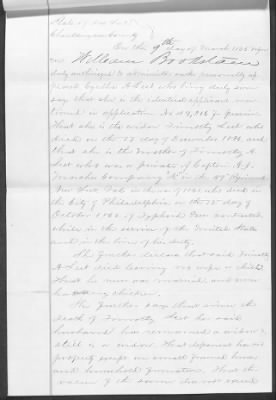 State of New York
Chautauqua County
On this 9th day of March 1885 before
me William Bookstaver
duly authorized to administer oaths personally ap
peared Cynthia A Sect who being duly sworn
says that she is the identical applicant men
tioned in application No for pension
that she is the widow Timothy Sect who
died on the day of December and
that she is the Mother of Timothy A
Sect who was a private of Captain A.J.
Company "K" in the Regiment
New York Vols in the war of 1861 who died in
the City of Philadelphia on the 15 day of
October 1862 of Typhoid Fever contracted
while in the service of the United States
and in the line of his duty,
She further declares that said Timothy
A Sect died leaving no wife or child
that he was never married and never
had any children.
She further says that since the
death of Timothy Sect her said
husband has remained a widow &
still is a widow. That deponent has no
property except an small framed house
and household furniture. That the
value of the same does not exceed